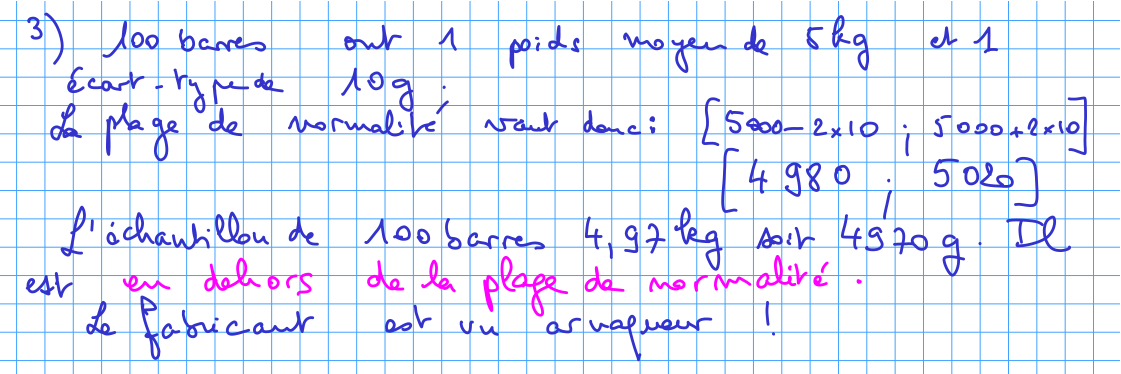 3) 100 barres ont 1 poids moyen de 5kg et 1
écart-type de 10g.
La plage de normalité vaut donc : [5000-2×10 ; 5000+2×10]
[4 980 ; 5020]
L'échantillon de 100 barres 4,97 kg soit 4970 g. Il
est en dehors de la plage de normalité.
Le fabricant est un arnaqueur !